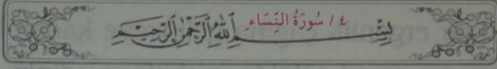 ٤ / سُورَةُ النِّسَاءِ
بِسْمِ اللَّهِ الرَّحْمَٰنِ الرَّحِيمِ